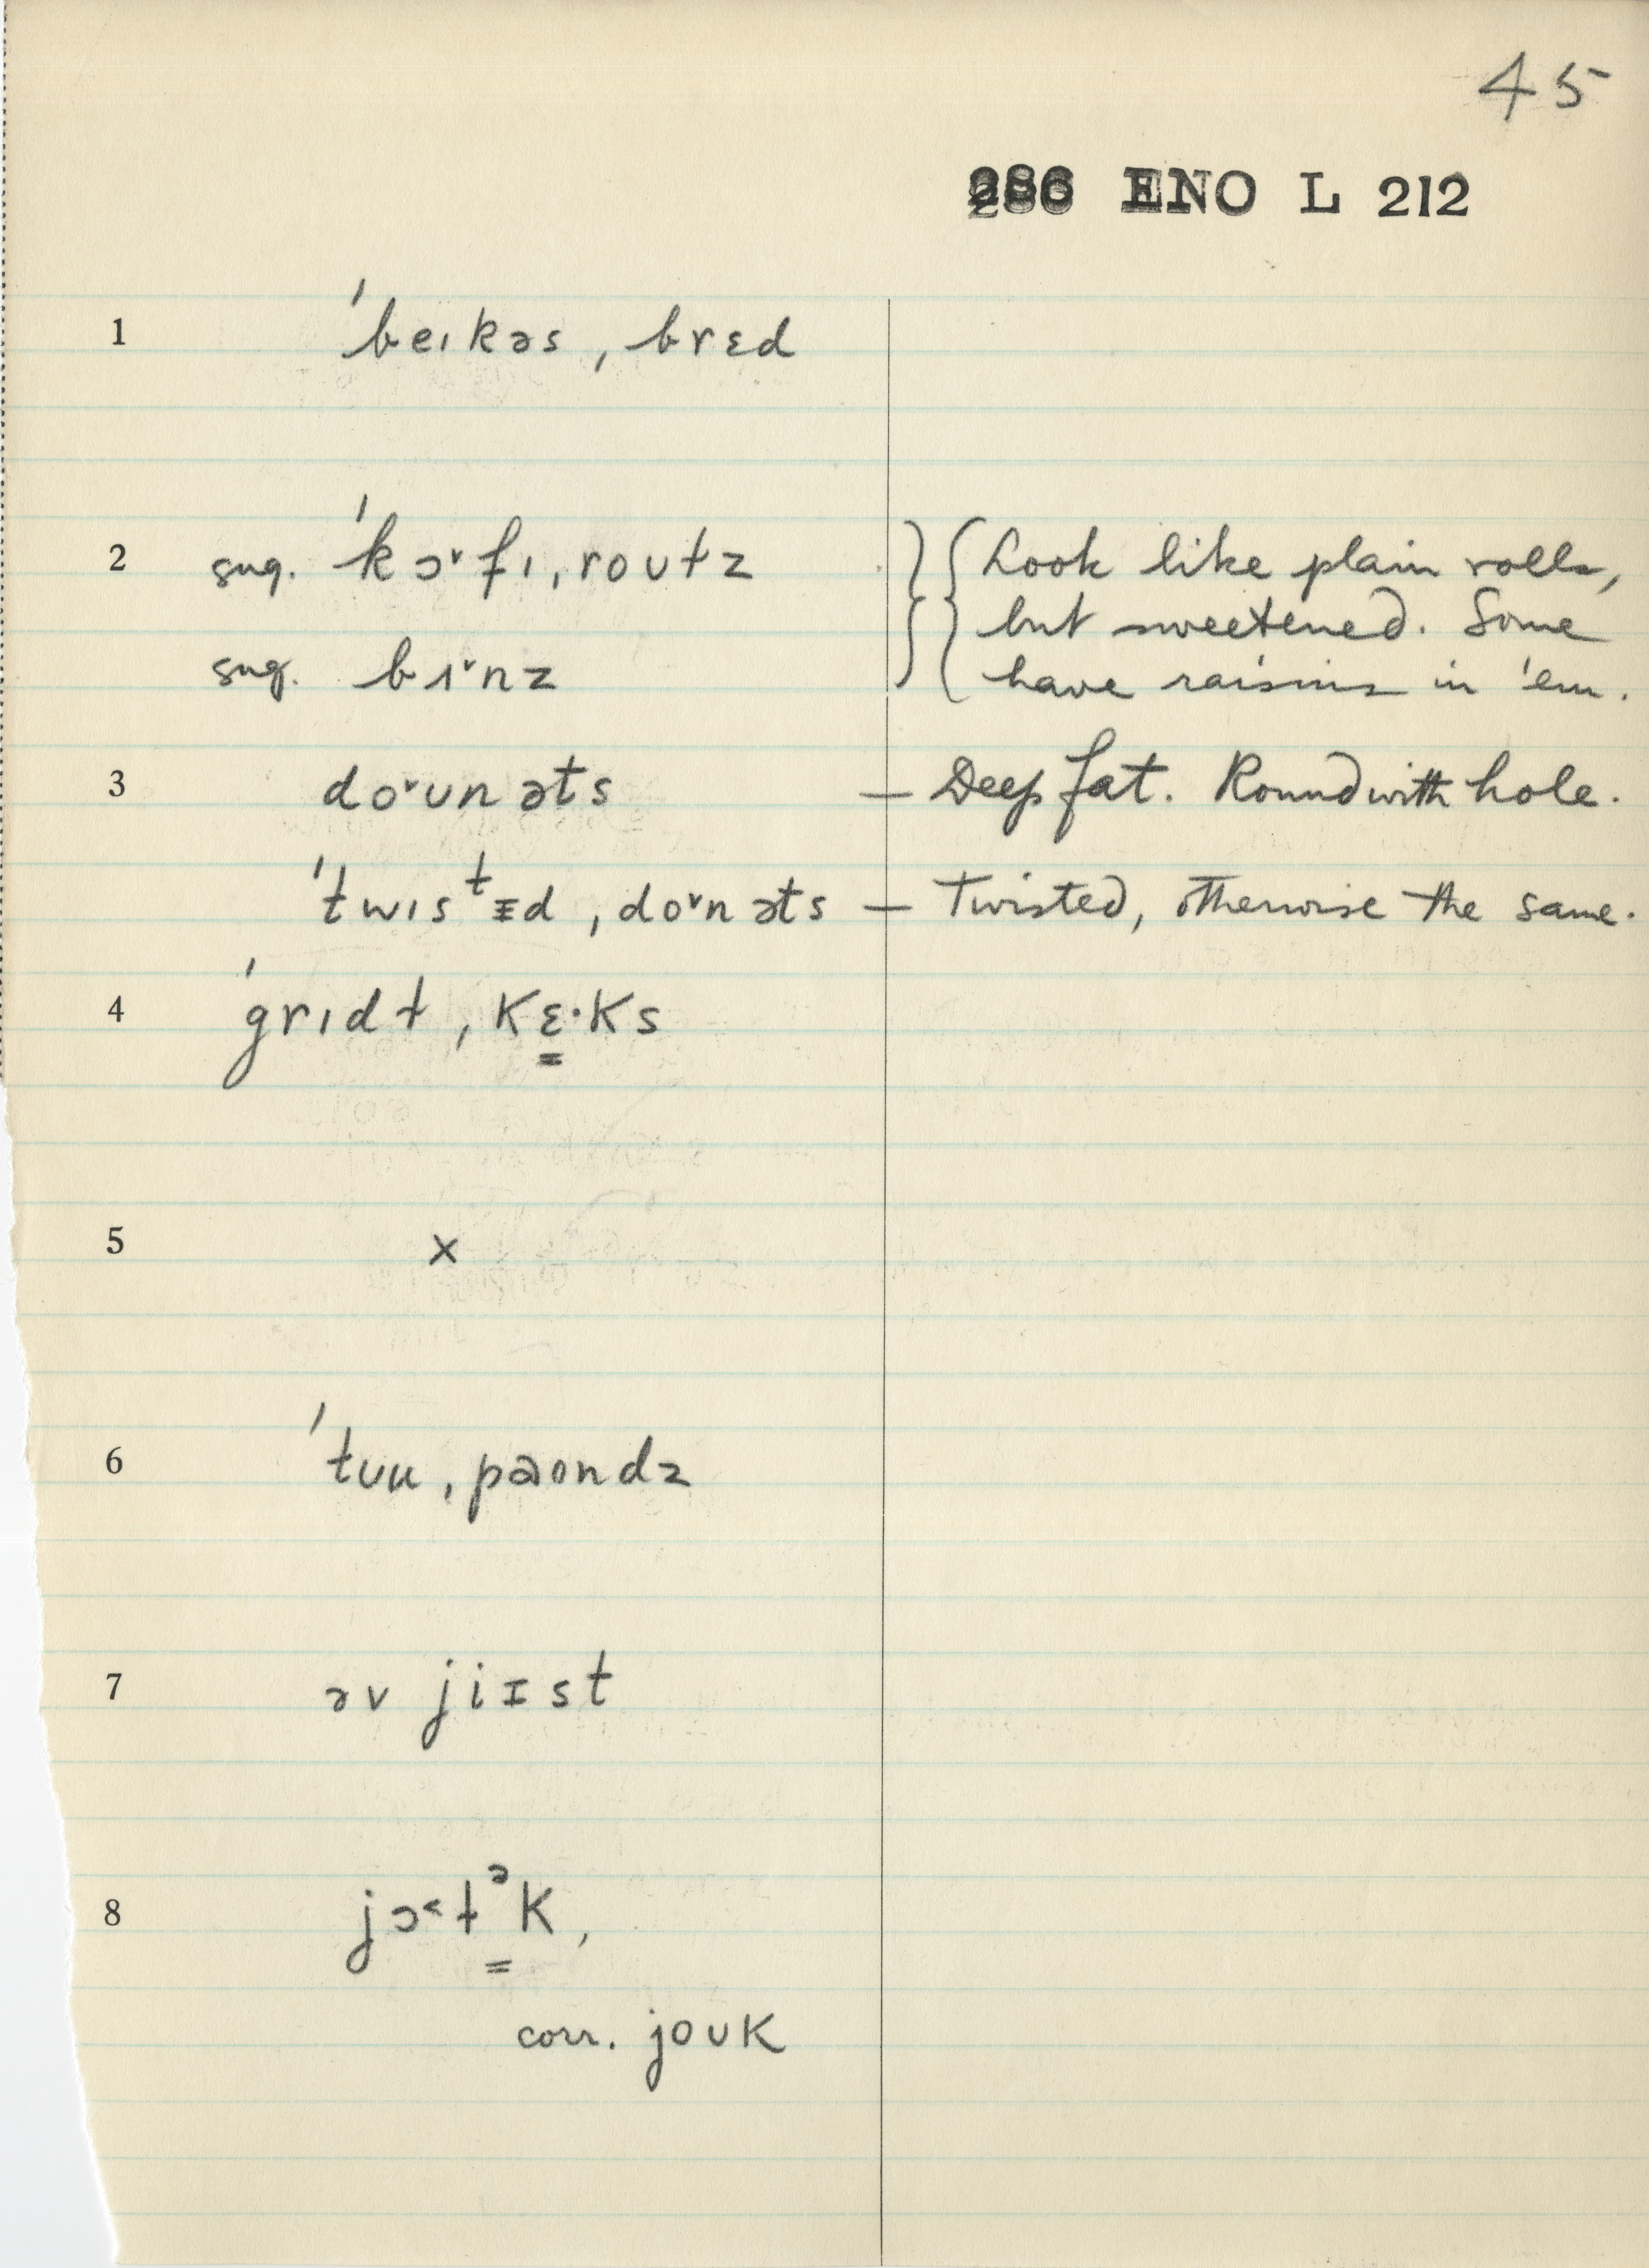 45
286 ENO L 212
1 ˈbeɪkəs ˌbrɛd
2 sug. ˈkɔ˅fɪ ˌroʊɫz } { Look like plain rolls,
but sweetened. Some
sug. bɪ˅nz have raisins in 'em.
3 do˅ʊnəts — Deep fat. Round with hole.
ˈtwɪsᵗɪd ˌdo˅nəts — Twisted, otherwise the same.
4 ˈgrɪdɫ ˌkɛ·ks
5 x
6 ˈtʊu ˌpaʊndz
7 əv jiɪst
8 jɔ˂ɫᵊk,
corr. joʊk